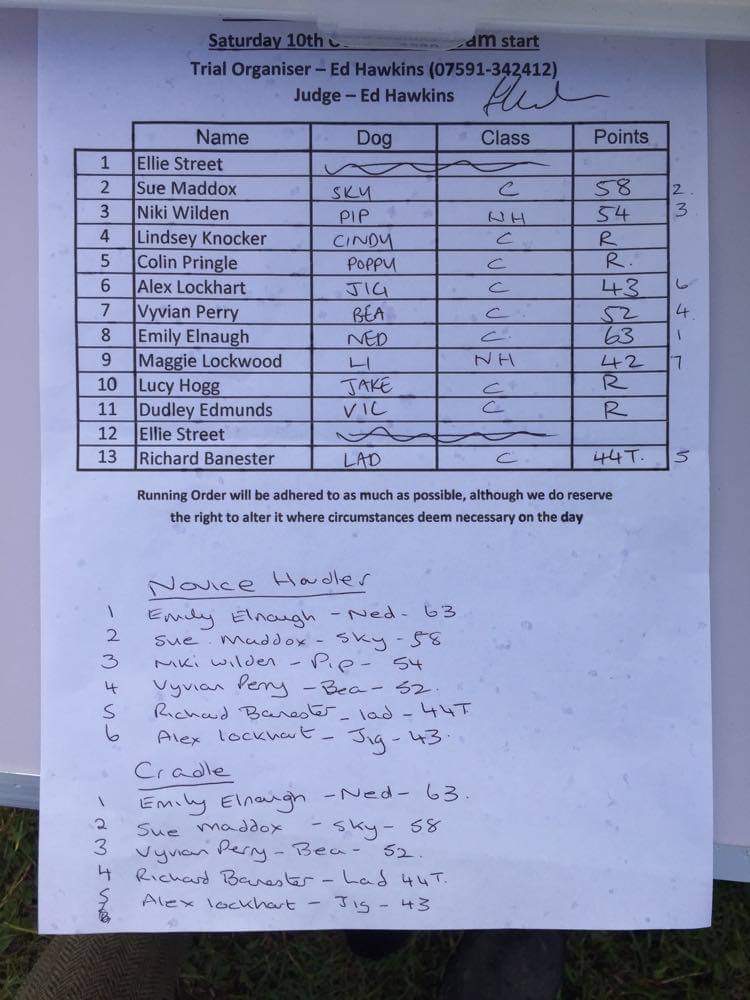 Saturday 10th am start
Trial Organiser – Ed Hawkins (07591-342412)
Judge – Ed Hawkins
Name Dog Class Points
1 Ellie Street
2 Sue Maddox SKY C 58 2.
3 Niki Wilden PIP NH 54 3
4 Lindsey Knocker CINDY C R
5 Colin Pringle POPPY C R.
6 Alex Lockhart JIG C 43 6
7 Vyvian Perry BEA C 52 4.
8 Emily Elnaugh NED C. 63 1
9 Maggie Lockwood LI NH 42 7
10 Lucy Hogg JAKE C R
11 Dudley Edmunds VIC C R
12 Ellie Street
13 Richard Banester LAD C 44T. 5
Running Order will be adhered to as much as possible, although we do reserve
the right to alter it where circumstances deem necessary on the day
Novice Handler
1 Emily Elnaugh - Ned - 63
2 Sue Maddox - Sky - 58
3 Niki Wilden - Pip - 54
4 Vyvian Perry - Bea - 52.
5 Richard Banester - lad - 44T
6 Alex lockhart - Jig - 43.
Cradle
1 Emily Elnaugh - Ned - 63.
2 Sue Maddox - Sky - 58
3 Vyvian Perry - Bea - 52.
4 Richard Banester - Lad 44T.
5 Alex lockhart - Jig - 43